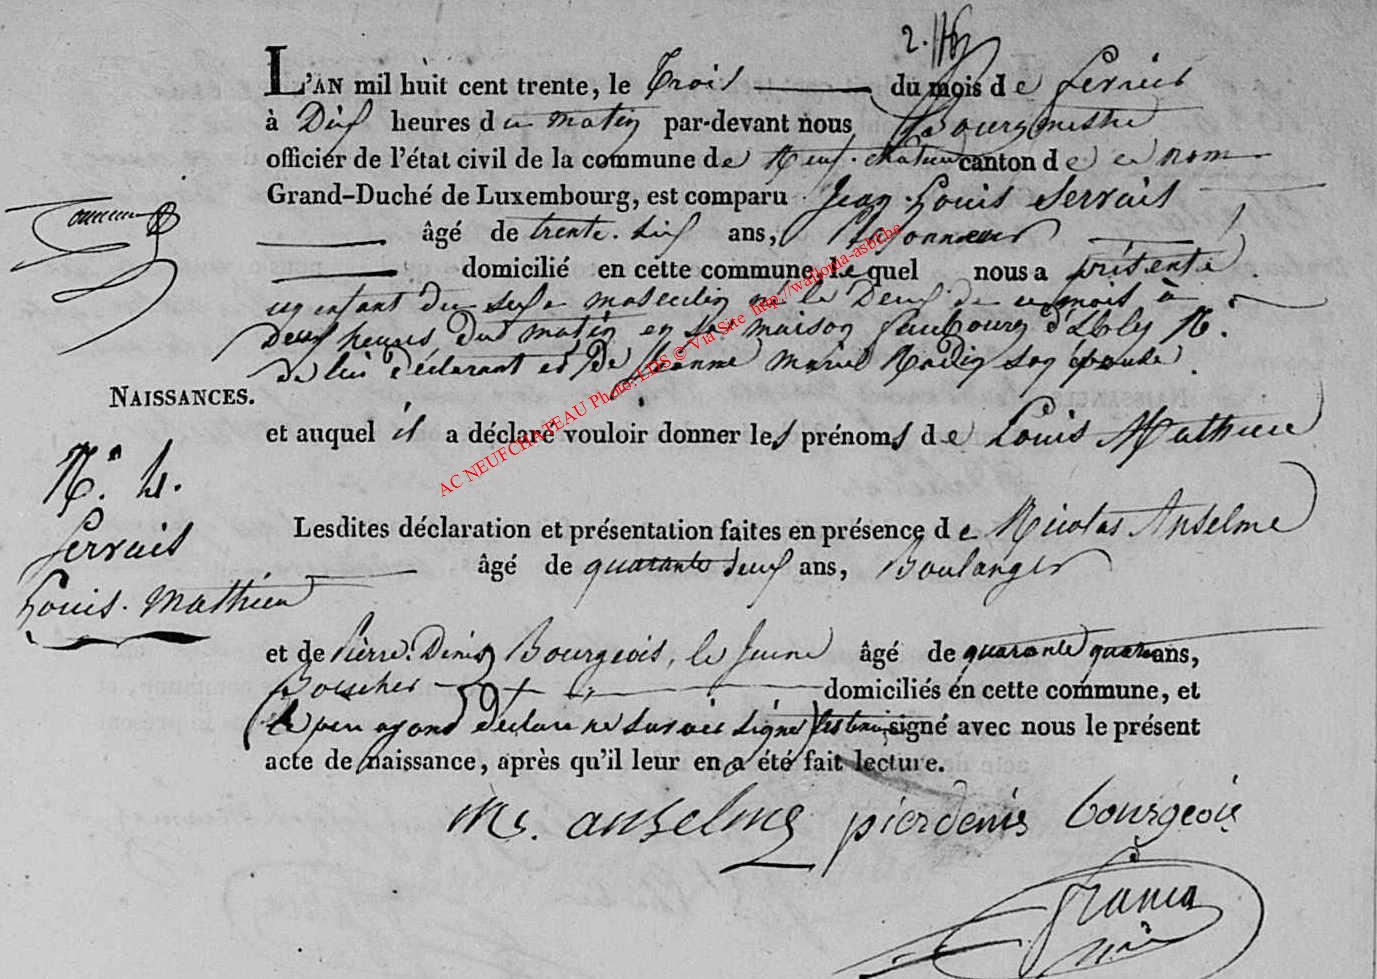 L'AN mil huit cent trente, le Trois du mois de fevrier
à Dix heures du matin par-devant nous Bourgmestre
officier de l'état civil de la commune de Neuf-château canton de ce nom
Grand-Duché de Luxembourg, est comparu Jean Louis Servais
âgé de trente-six ans,
domicilié en cette commune, lequel nous a présenté
un enfant du sexe masculin né le Deux de ce mois à
Deux heures du matin en sa maison faubourg N.
de lui déclarant et De Jeanne Marie son épouse
NAISSANCES.
et auquel il a déclaré vouloir donner les prénoms de Louis Mathieu
N. 4.
Servais
Louis. Mathieu
Lesdites déclaration et présentation faites en présence de Nicolas Anselme
âgé de quarante deux ans, Boulanger
et de Pierre Denis Bourgeois, le jeune âgé de quarante quatre ans,
Boucher domiciliés en cette commune, et
(le pere ayant déclaré ne savoir signer) les temoins signé avec nous le présent
acte de naissance, après qu'il leur en a été fait lecture.
anselme pierdenis bourgeois
AC NEUFCHATEAU Photo: LDS © Via Site http://wallonia-asbl.be